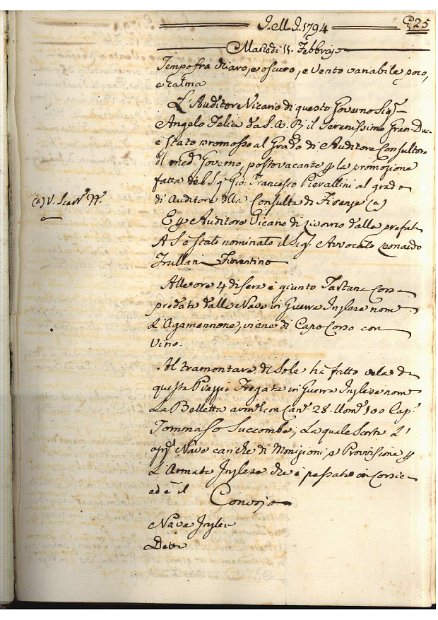 J. M. J. 1794
225
Martedi 11. Febbrajo
Tempo fra chiaro, e oscuro, e Vento variabile poco,
e calma
L'Auditore Vicario di questo Governo Sigr.
Angelo Felici da S. A. R. il Serenissimo Gran Duca
è stato promosso al Grado di Auditore Consultore
il med. Governo, posto vacante p la promozione
fatta del Sig. Gio. Francesco Pierallini al grado
di Auditore della Consulta di Firenze (a)
(a) V.
E p Auditore Vicario di Livorno dalla prefat.
A. S. è stato nominato il Sig. Avvocato Leonardo
Frullani Fiorentino
Alle ore 4 di sere è giunto Tartana
predata dalla Nave in Guerra Inglese nom.
L'Agamennone, viene di Capo Corso con
Vino.
Al tramontare di Sole ha fatto vela da
questa Piaggia Fregata in Guerra Inglese nom.
La Belletta arm. con Can. 28. Uom. 100 Cap.
Tommaso Succombe, La quale scorta L'
app. Nave cariche di Monizioni, e Provvisione p
L'Armata Inglese che è passata in Corsica
ed è il
Convojo
Nave Inglese
Detta